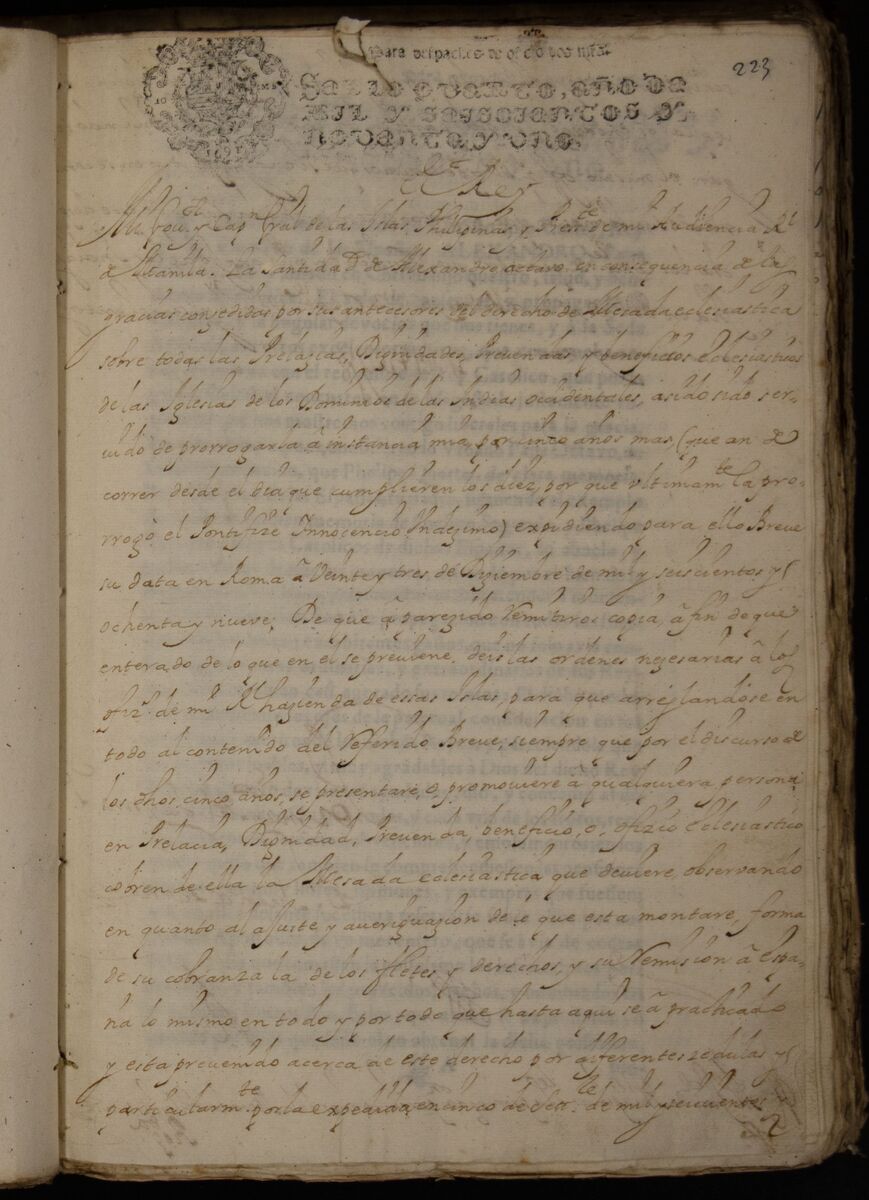 Para despachos de oficio dos mrs.
223
SELLO QVARTO, AÑO DE
MIL Y SEISCIENTOS Y
NOVENTA Y VNO.
El Rey
Mi Gou.or y Cap.n Gral de las Islas Philipinas y Press.te de mi Audiencia R.l
de Manila. La Santidad de Alexandro octavo en consequencia de las
gracias conzedidas por sus antecesores del derecho de Mesada eclesiastica
sobre todas las Prelazias, Dignidades, Preuendas y beneficios eclesiasticos
de las Iglesias de los Dominios de las Indias Occidentales, a sido ser-
uido de prorrogarla â instancia mia, por cinco años mas, (que an de
correr desde el dia que cumplieren los diez, por que vltimam.te la pro-
rrogò el Pontifize Innocencio Vndezimo) expidiendo para ello Breve
su data en Roma â Veinte y tres de Diziembre de mil y seiscientos y
ochenta y nueve; De que â parezido remitiros copia, â fin de que
enterado de lo que en el se preuiene, deis las ordenes nezesarias â los
ofiz.s de mi R.l hazienda de essas Islas, para que arreglandose en
todo al contenido del referido Breve, siempre que por el discurso de
los dhos cinco años, se presentare, o, promouiere â qualquiera persona
en Prelacia, Dignidad, Preuenda, beneficio, o, ofizio eclesiastico
cobren de ella la Mesada eclesiastica que deuiere, observando
en quanto al ajuste y aueriguazion de lo que esta montare, forma
de su cobranza la de los fletes y derechos, y su remision â Espa-
ña lo mismo en todo y por todo que hasta aqui se â practicado
y esta preuenido acerca de este derecho por diferentes zedulas y
particularm.te por la expedida en cinco de de mil y seiscientos